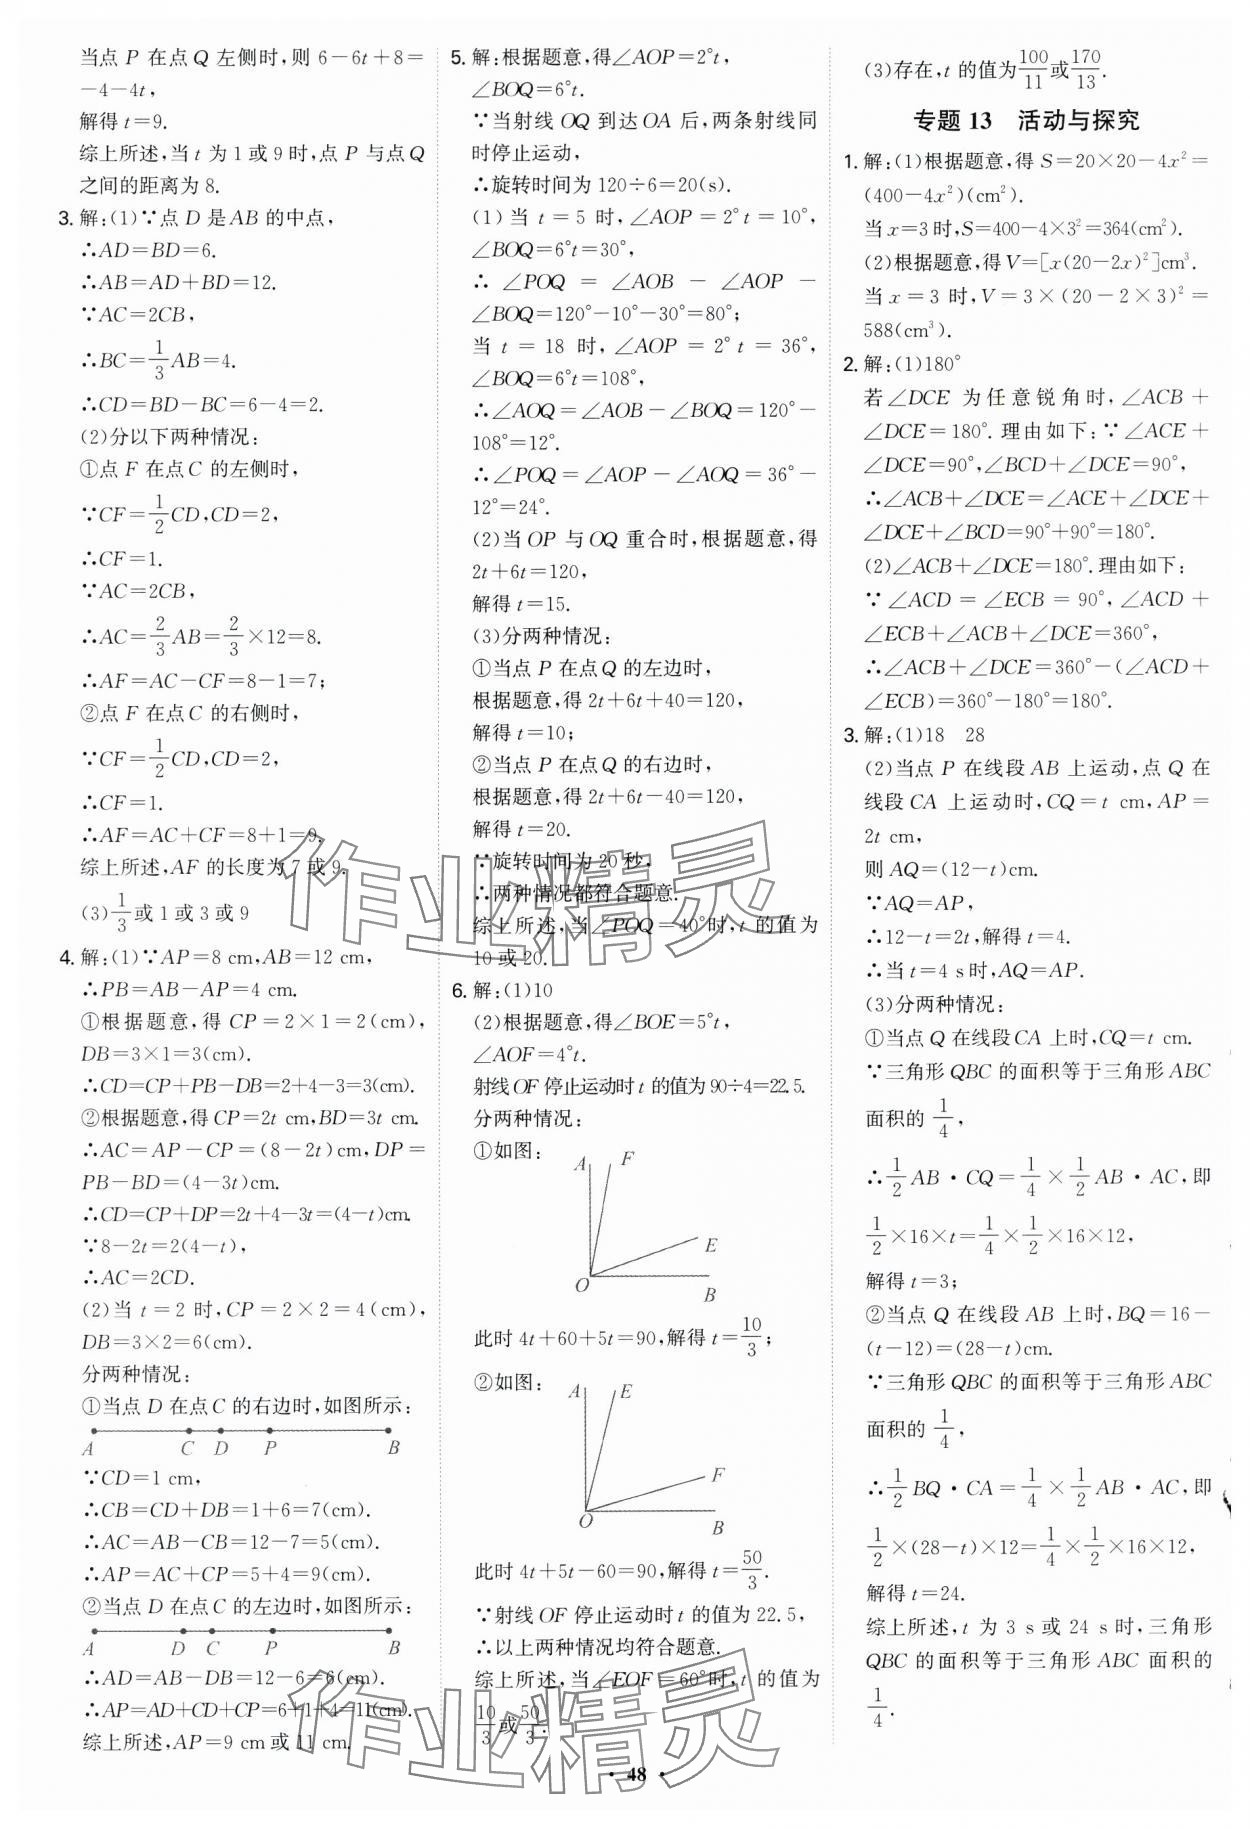 当点 P 在点 Q 左侧时,则 6－6t＋8＝
－4－4t,
解得 t＝9.
综上所述,当 t 为 1 或 9 时,点 P 与点 Q
之间的距离为 8.
3. 解:(1)∵点 D 是 AB 的中点,
∴AD＝BD＝6.
∴AB＝AD＋BD＝12.
∵AC＝2CB,
∴BC＝1/3 AB＝4.
∴CD＝BD－BC＝6－4＝2.
(2)分以下两种情况:
①点 F 在点 C 的左侧时,
∵CF＝1/2 CD,CD＝2,
∴CF＝1.
∵AC＝2CB,
∴AC＝2/3 AB＝2/3×12＝8.
∴AF＝AC－CF＝8－1＝7;
②点 F 在点 C 的右侧时,
∵CF＝1/2 CD,CD＝2,
∴CF＝1.
∴AF＝AC＋CF＝8＋1＝9.
综上所述,AF 的长度为 7 或 9.
(3)1/3 或 1 或 3 或 9
4. 解:(1)∵AP＝8 cm,AB＝12 cm,
∴PB＝AB－AP＝4 cm.
①根据题意,得 CP＝2×1＝2(cm),
DB＝3×1＝3(cm).
∴CD＝CP＋PB－DB＝2＋4－3＝3(cm).
②根据题意,得 CP＝2t cm,BD＝3t cm.
∴AC＝AP－CP＝(8－2t)cm,DP＝
PB－BD＝(4－3t)cm.
∴CD＝CP＋DP＝2t＋4－3t＝(4－t)cm.
∵8－2t＝2(4－t),
∴AC＝2CD.
(2)当 t＝2 时,CP＝2×2＝4(cm),
DB＝3×2＝6(cm).
分两种情况:
①当点 D 在点 C 的右边时,如图所示:
A C D P B
∵CD＝1 cm,
∴CB＝CD＋DB＝1＋6＝7(cm).
∴AC＝AB－CB＝12－7＝5(cm).
∴AP＝AC＋CP＝5＋4＝9(cm).
②当点 D 在点 C 的左边时,如图所示:
A D C P B
∴AD＝AB－DB＝12－6＝6(cm).
∴AP＝AD＋CD＋CP＝6＋1＋4＝11(cm).
综上所述,AP＝9 cm 或 11 cm.
5. 解:根据题意,得∠AOP＝2°t,
∠BOQ＝6°t.
∵当射线 OQ 到达 OA 后,两条射线同
时停止运动,
∴旋转时间为 120÷6＝20(s).
(1)当 t＝5 时,∠AOP＝2°t＝10°,
∠BOQ＝6°t＝30°,
∴∠POQ＝∠AOB－∠AOP－
∠BOQ＝120°－10°－30°＝80°;
当 t＝18 时,∠AOP＝2°t＝36°,
∠BOQ＝6°t＝108°,
∴∠AOQ＝∠AOB－∠BOQ＝120°－
108°＝12°.
∴∠POQ＝∠AOP－∠AOQ＝36°－
12°＝24°.
(2)当 OP 与 OQ 重合时,根据题意,得
2t＋6t＝120,
解得 t＝15.
(3)分两种情况:
①当点 P 在点 Q 的左边时,
根据题意,得 2t＋6t＋40＝120,
解得 t＝10;
②当点 P 在点 Q 的右边时,
根据题意,得 2t＋6t－40＝120,
解得 t＝20.
∵旋转时间为 20 秒,
∴两种情况都符合题意.
综上所述,当∠POQ＝40°时,t 的值为
10 或 20.
6. 解:(1)10
(2)根据题意,得∠BOE＝5°t,
∠AOF＝4°t.
射线 OF 停止运动时 t 的值为 90÷4＝22.5.
分两种情况:
①如图:
A F
E
O B
此时 4t＋60＋5t＝90,解得 t＝10/3;
②如图:
A E
F
O B
此时 4t＋5t－60＝90,解得 t＝50/3.
∵射线 OF 停止运动时 t 的值为 22.5,
∴以上两种情况均符合题意.
综上所述,当∠EOF＝60°时,t 的值为
10/3 或 50/3.
(3)存在,t 的值为 100/11 或 170/13.
专题 13 活动与探究
1. 解:(1)根据题意,得 S＝20×20－4x²＝
(400－4x²)(cm²).
当 x＝3 时,S＝400－4×3²＝364(cm²).
(2)根据题意,得 V＝[x(20－2x)²]cm³.
当 x＝3 时,V＝3×(20－2×3)²＝
588(cm³).
2. 解:(1)180°
若∠DCE 为任意锐角时,∠ACB＋
∠DCE＝180°.理由如下:∵∠ACE＋
∠DCE＝90°,∠BCD＋∠DCE＝90°,
∴∠ACB＋∠DCE＝∠ACE＋∠DCE＋
∠DCE＋∠BCD＝90°＋90°＝180°.
(2)∠ACB＋∠DCE＝180°.理由如下:
∵∠ACD＝∠ECB＝90°,∠ACD＋
∠ECB＋∠ACB＋∠DCE＝360°,
∴∠ACB＋∠DCE＝360°－(∠ACD＋
∠ECB)＝360°－180°＝180°.
3. 解:(1)18 28
(2)当点 P 在线段 AB 上运动,点 Q 在
线段 CA 上运动时,CQ＝t cm,AP＝
2t cm,
则 AQ＝(12－t)cm.
∵AQ＝AP,
∴12－t＝2t,解得 t＝4.
∴当 t＝4 s时,AQ＝AP.
(3)分两种情况:
①当点 Q 在线段 CA 上时,CQ＝t cm.
∵三角形 QBC 的面积等于三角形 ABC
面积的 1/4,
∴1/2 AB·CQ＝1/4×1/2 AB·AC,即
1/2×16×t＝1/4×1/2×16×12,
解得 t＝3;
②当点 Q 在线段 AB 上时,BQ＝16－
(t－12)＝(28－t)cm.
∵三角形 QBC 的面积等于三角形 ABC
面积的 1/4,
∴1/2 BQ·CA＝1/4×1/2 AB·AC,即
1/2×(28－t)×12＝1/4×1/2×16×12,
解得 t＝24.
综上所述,t 为 3 s 或 24 s 时,三角形
QBC 的面积等于三角形 ABC 面积的
1/4.
· 48 ·
作业精灵
作业精灵